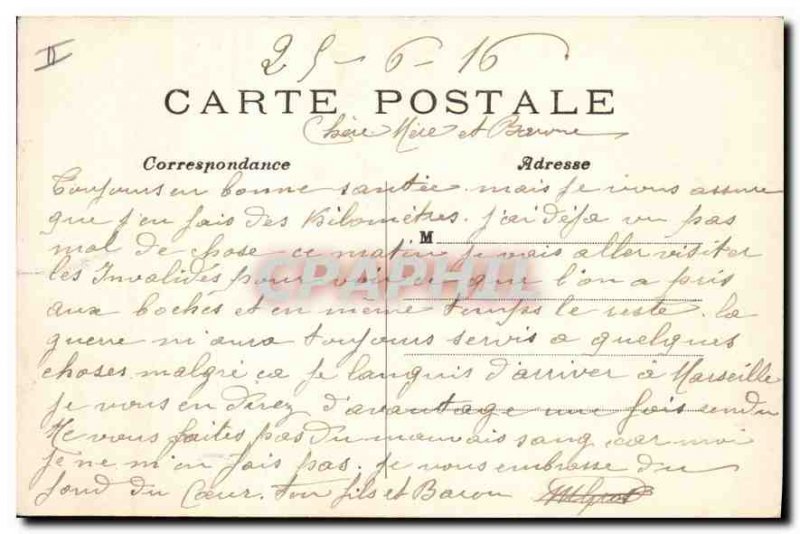 II
25-6-16
CARTE POSTALE
Chère Mère et Barone
Correspondance
Adresse
Toujours en bonne santée. mais je vous assure
que j'en fais des Kilomètres. j'ai déja vu pas
M
mal de chose ce matin je vais aller visiter
les Invalides pour voir ce que l'on a pris
CPAPHIL
aux boches et en meme temps le reste. la
guerre m'aura toujours servis a quelques
choses malgré ca je languis d'arriver à Marseille
je vous en direz d'avantage une fois rendu
Ne vous faites pas du mauvais sang car moi
je ne m'en fais pas. je vous embrasse du
fond du Cœur. ton fils et Baron